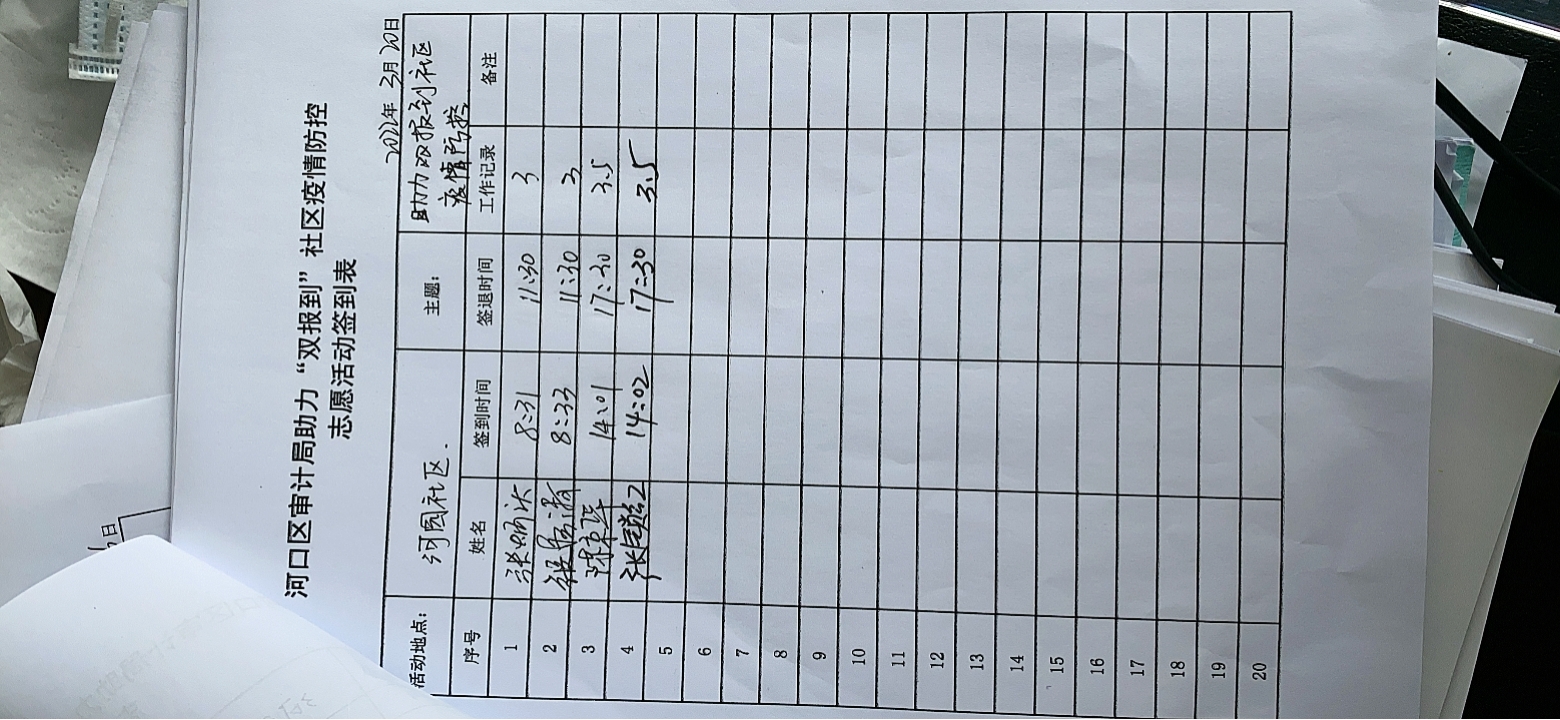 河口区审计局助力“双报到”社区疫情防控
志愿活动签到表
2022年 3月 20日
活动地点： 河园社区. 主题： 助力双报到社区
疫情防控
序号 姓名 签到时间 签退时间 工作记录 备注
1 8:31 11:30 3
2 8:33 11:30 3
3 14:01 17:30 3.5
4 14:02 17:30 3.5
5
6
7
8
9
10
11
12
13
14
15
16
17
18
19
20
日